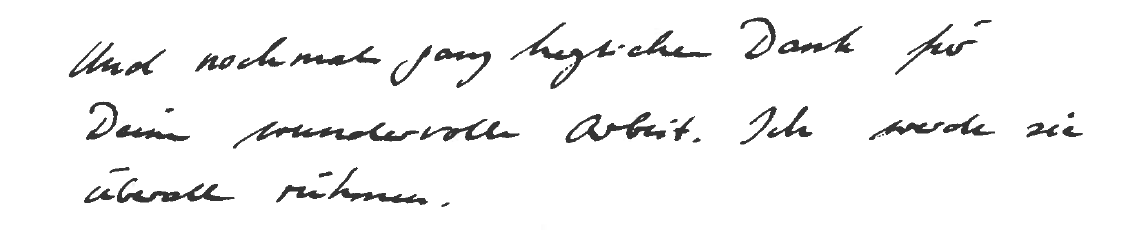 Und nochmals ganz herzlichen Dank für
Deine wundervolle Arbeit. Ich werde sie
überall rühmen.